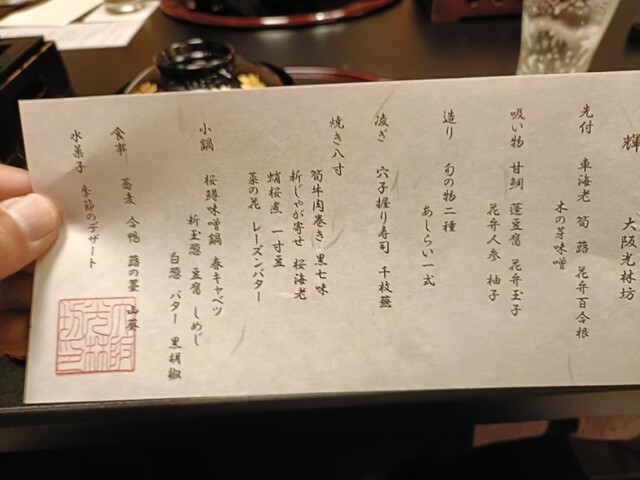 輝 大阪光林坊
先付 車海老 筍 蕗 花弁百合根
木の芽味噌
吸い物 甘鯛 蓬豆腐 花弁玉子
花弁人参 柚子
造り 旬の物二種
あしらい一式
凌ぎ 穴子握り寿司 千枚蕪
焼き八寸
筍牛肉巻き 黒七味
新じゃが寄せ 桜海老
蛸桜煮 一寸豆
菜の花 レーズンバター
小鍋 桜鱒味噌鍋 春キャベツ
新玉葱 豆腐 しめじ
白葱 バター 黒胡椒
食事 蕎麦 合鴨 蕗の薹 山葵
水菓子 季節のデザート